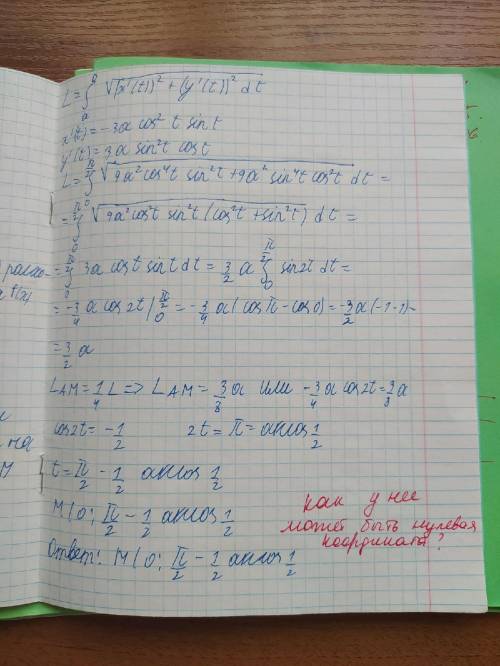 L = ∫ₐᵝ √((x'(t))² + (y'(t))² dt
x'(t) = -3a cos² t sin t
y'(t) = 3a sin² t cos t
L = ∫₀^(π/2) √(9a² cos⁴t sin²t + 9a² sin⁴t cos²t) dt =
= ∫₀^(π/2) √(9a² cos²t sin²t (cos²t + sin²t)) dt =
= ∫₀^(π/2) 3a cos t sin t dt = 3/2 a ∫₀^(π/2) sin 2t dt =
= -3/4 a cos 2t |₀^(π/2) = -3/4 a (cos π - cos 0) = -3/2 a (-1-1) -
= 3/2 a
L_AM = 1/4 L => L_AM = 3/8 a или -3/4 a cos 2t = 3/8 a
cos 2t = -1/2 2t = π = arccos 1/2
t = π/2 - 1/2 arccos 1/2
M (0; π/2 - 1/2 arccos 1/2
Ответ: M (0; π/2 - 1/2 arccos 1/2
Как у нее
может быть нулевая
координат?
t(x)
на
M